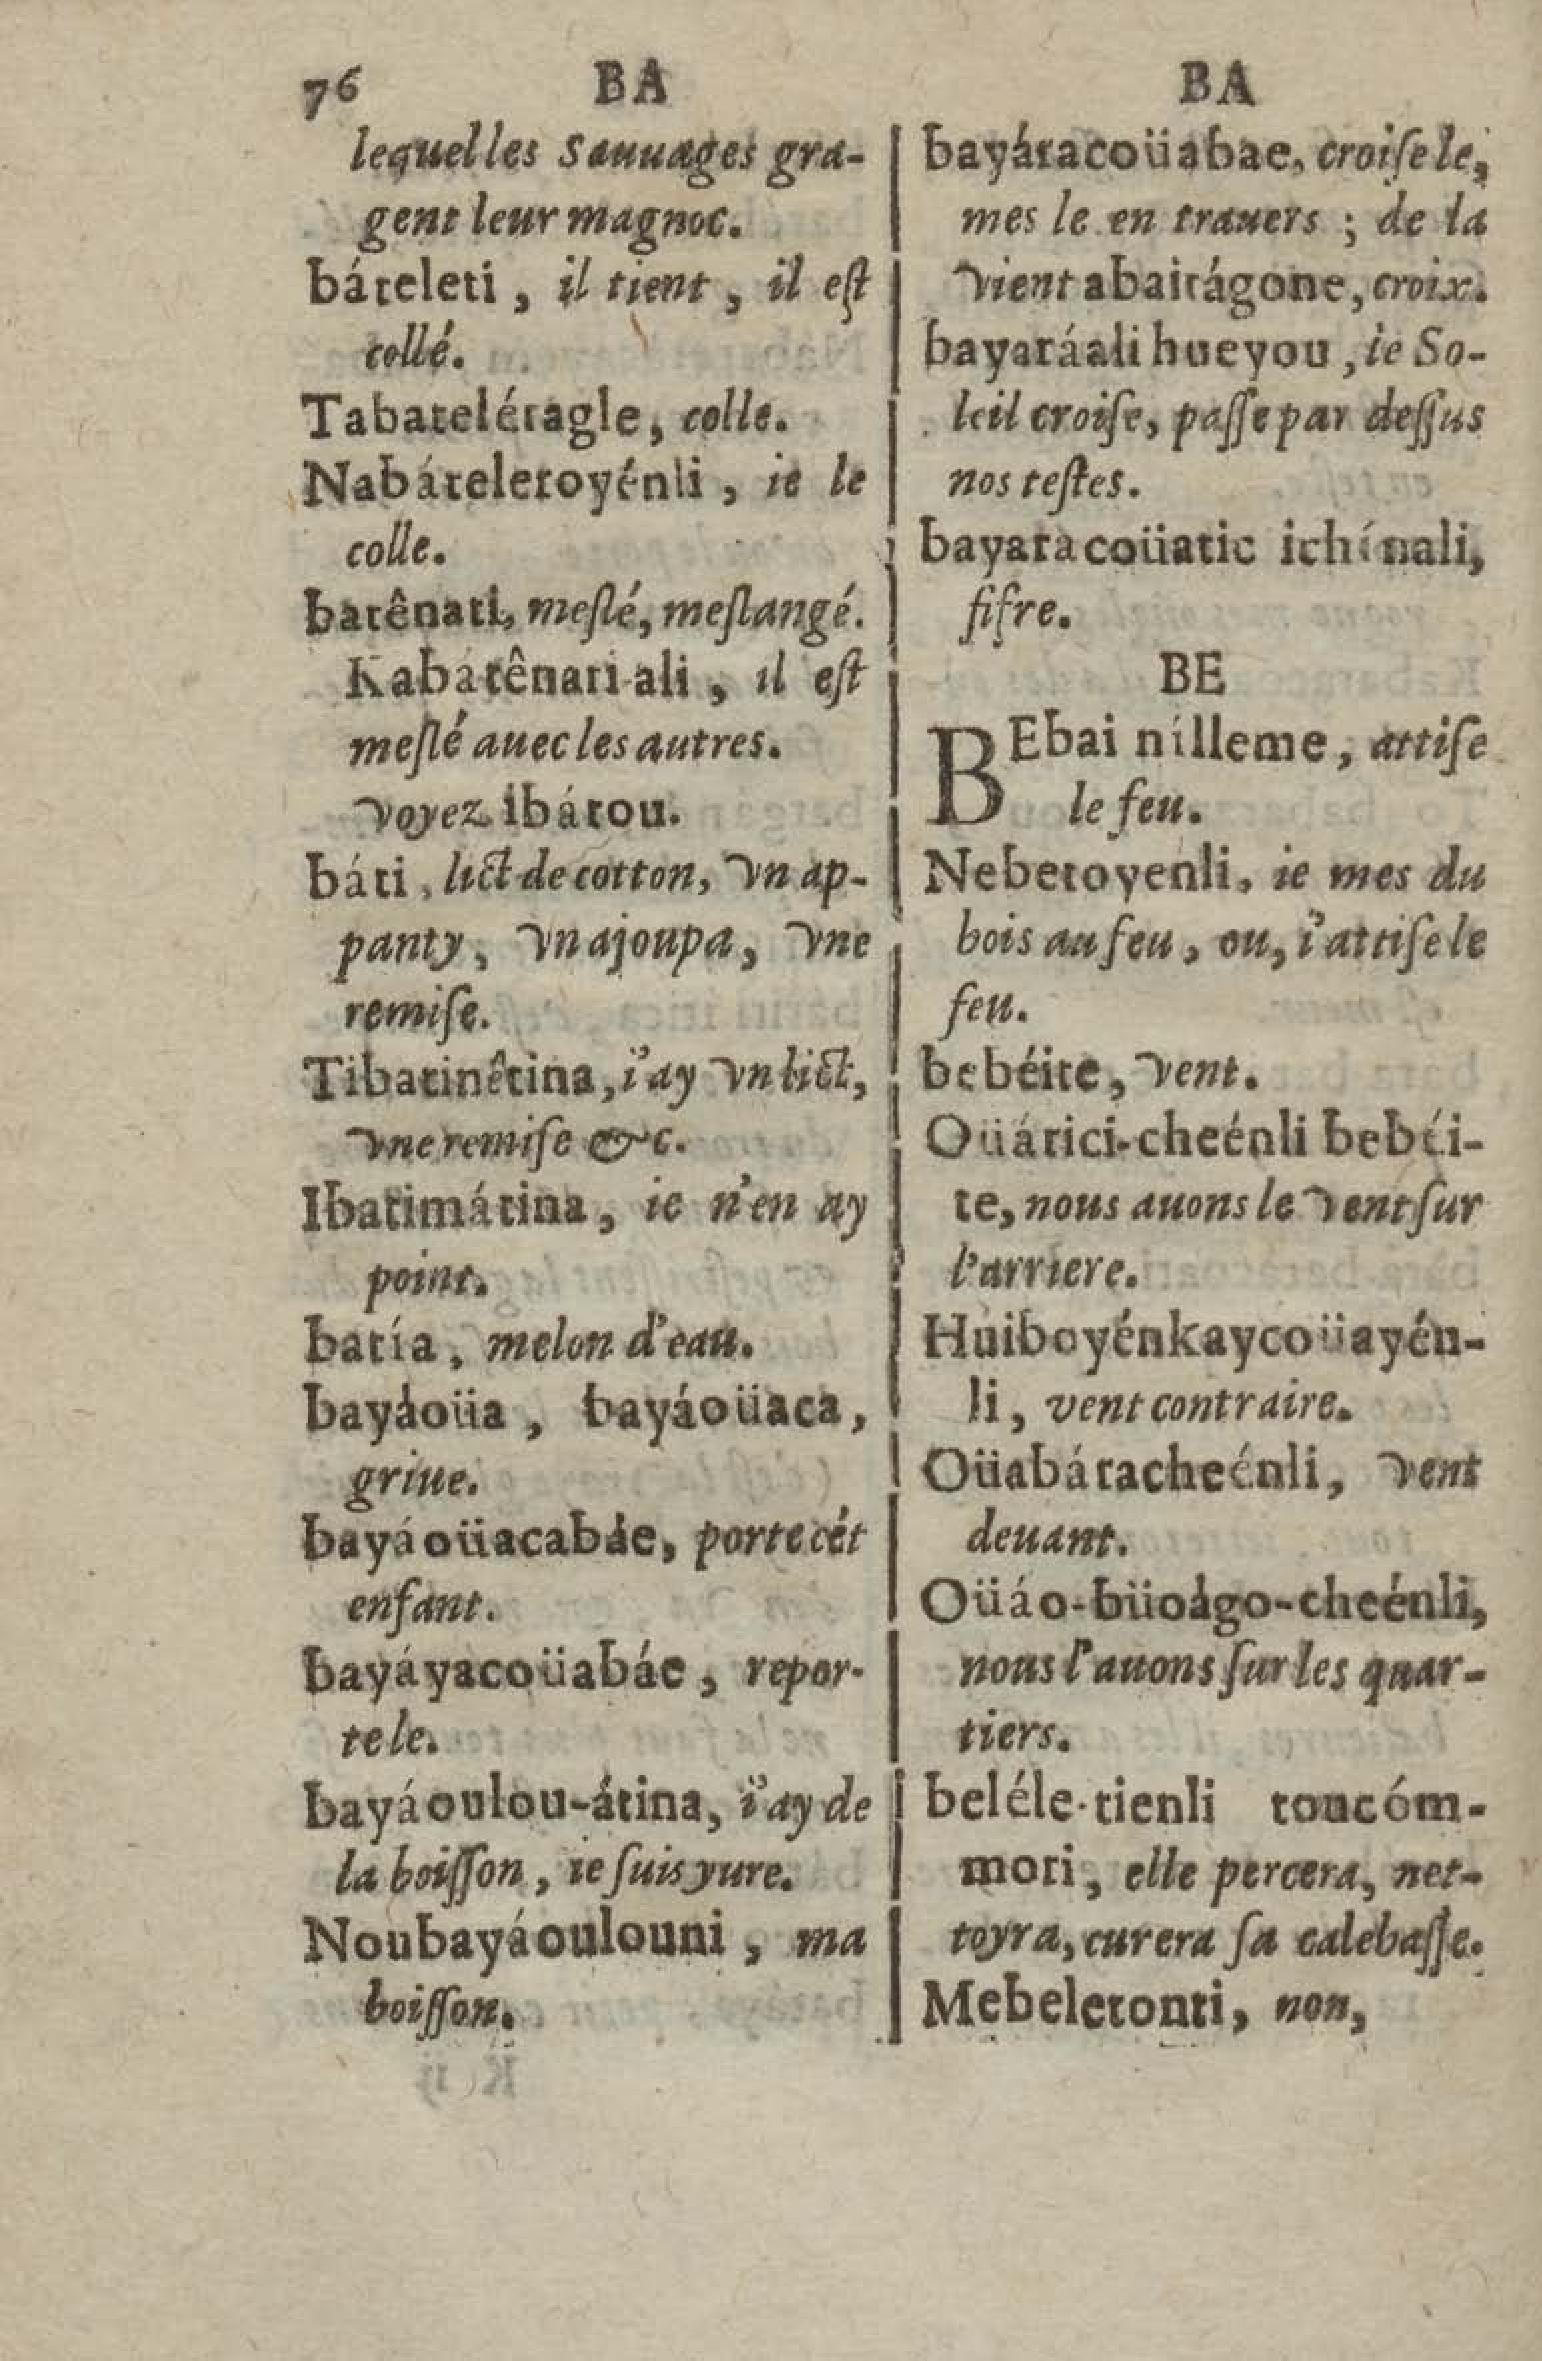 76 BA BA
lequelles Sauuages gra-
gent leur magnoc.
báteleti, il tient, il eſt
collé.
Tabatelétagle, colle.
Nabáteletoyénli, ie le
colle.
batênati, meſlé, meſlangé.
Kabátênati-ali, il eſt
meſlé auec les autres.
voyez ibátou.
báti, lict de cotton, vn ap-
panty, vn ajoupa, vne
remiſe.
Tibatinêtina, i'ay vn lict,
vne remiſe &c.
Ibatimátina, ie n'en ay
point.
batía, melon d'eau.
bayáoüa, bayáoüaca,
griue.
bayáoüacabáe, porte cét
enfant.
bayáyacoüabáe, repor-
te le.
bayáoulou-átina, i'ay de
la boiſſon, ie ſuis yure.
Noubayáoulouni, ma
boiſſon.
bayátacoüabae, croiſe le,
mes le en trauers ; de la
vient abaitágone, croix.
bayatáali hueyou, le So-
leil croiſe, paſſe par deſſus
nos teſtes.
bayatacoüatic ichínali,
fifre.
BE
BEbai nílleme, attiſe
le feu.
Nebetoyenli, ie mes du
bois au feu, ou, i'attiſe le
feu.
bebéite, vent.
Oüátici-cheénli bebéi-
te, nous auons le vent ſur
l'arriere.
Huiboyénkaycoüayén-
li, vent contraire.
Oüabátacheénli, vent
deuant.
Oüáo-büoágo-cheénli,
nous l'auons ſur les quar-
tiers.
beléle-tienli toucóm-
mori, elle percera, net-
toyra, curera ſa calebaſſe.
Mebeletonti, non,